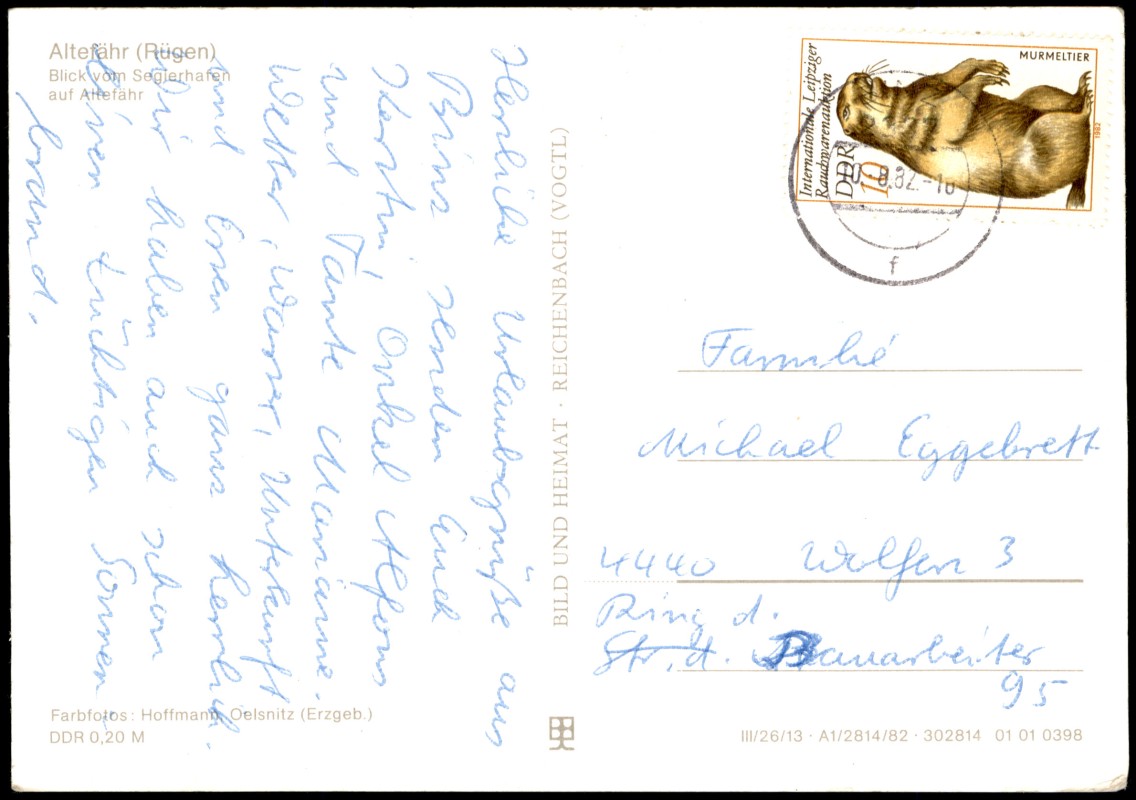 Altefähr (Rügen)
Blick vom Seglerhafen
auf Altefähr
Herzliche Urlaubsgrüße aus
Prinz senden Euch
Kerstin, Onkel Alfons
und Tante Marianne.
Wetter, Wasser, Unterkunft
und Essen ganz herrlich.
Wir haben auch schon
einen tüchtigen Sonnen-
brand.
Farbfotos: Hoffmann, Oelsnitz (Erzgeb.)
DDR 0,20 M
BILD UND HEIMAT · REICHENBACH (VOGTL)
Internationale Leipziger
Rauchwarenauktion
DDR
10
MURMELTIER
1982
8.82.-16
f
Familie
Michael Eggebrett
4440 Wolfen 3
Ring d.
Str. d. Bauarbeiter
95
III/26/13 · A1/2814/82 · 302814 01 01 0398